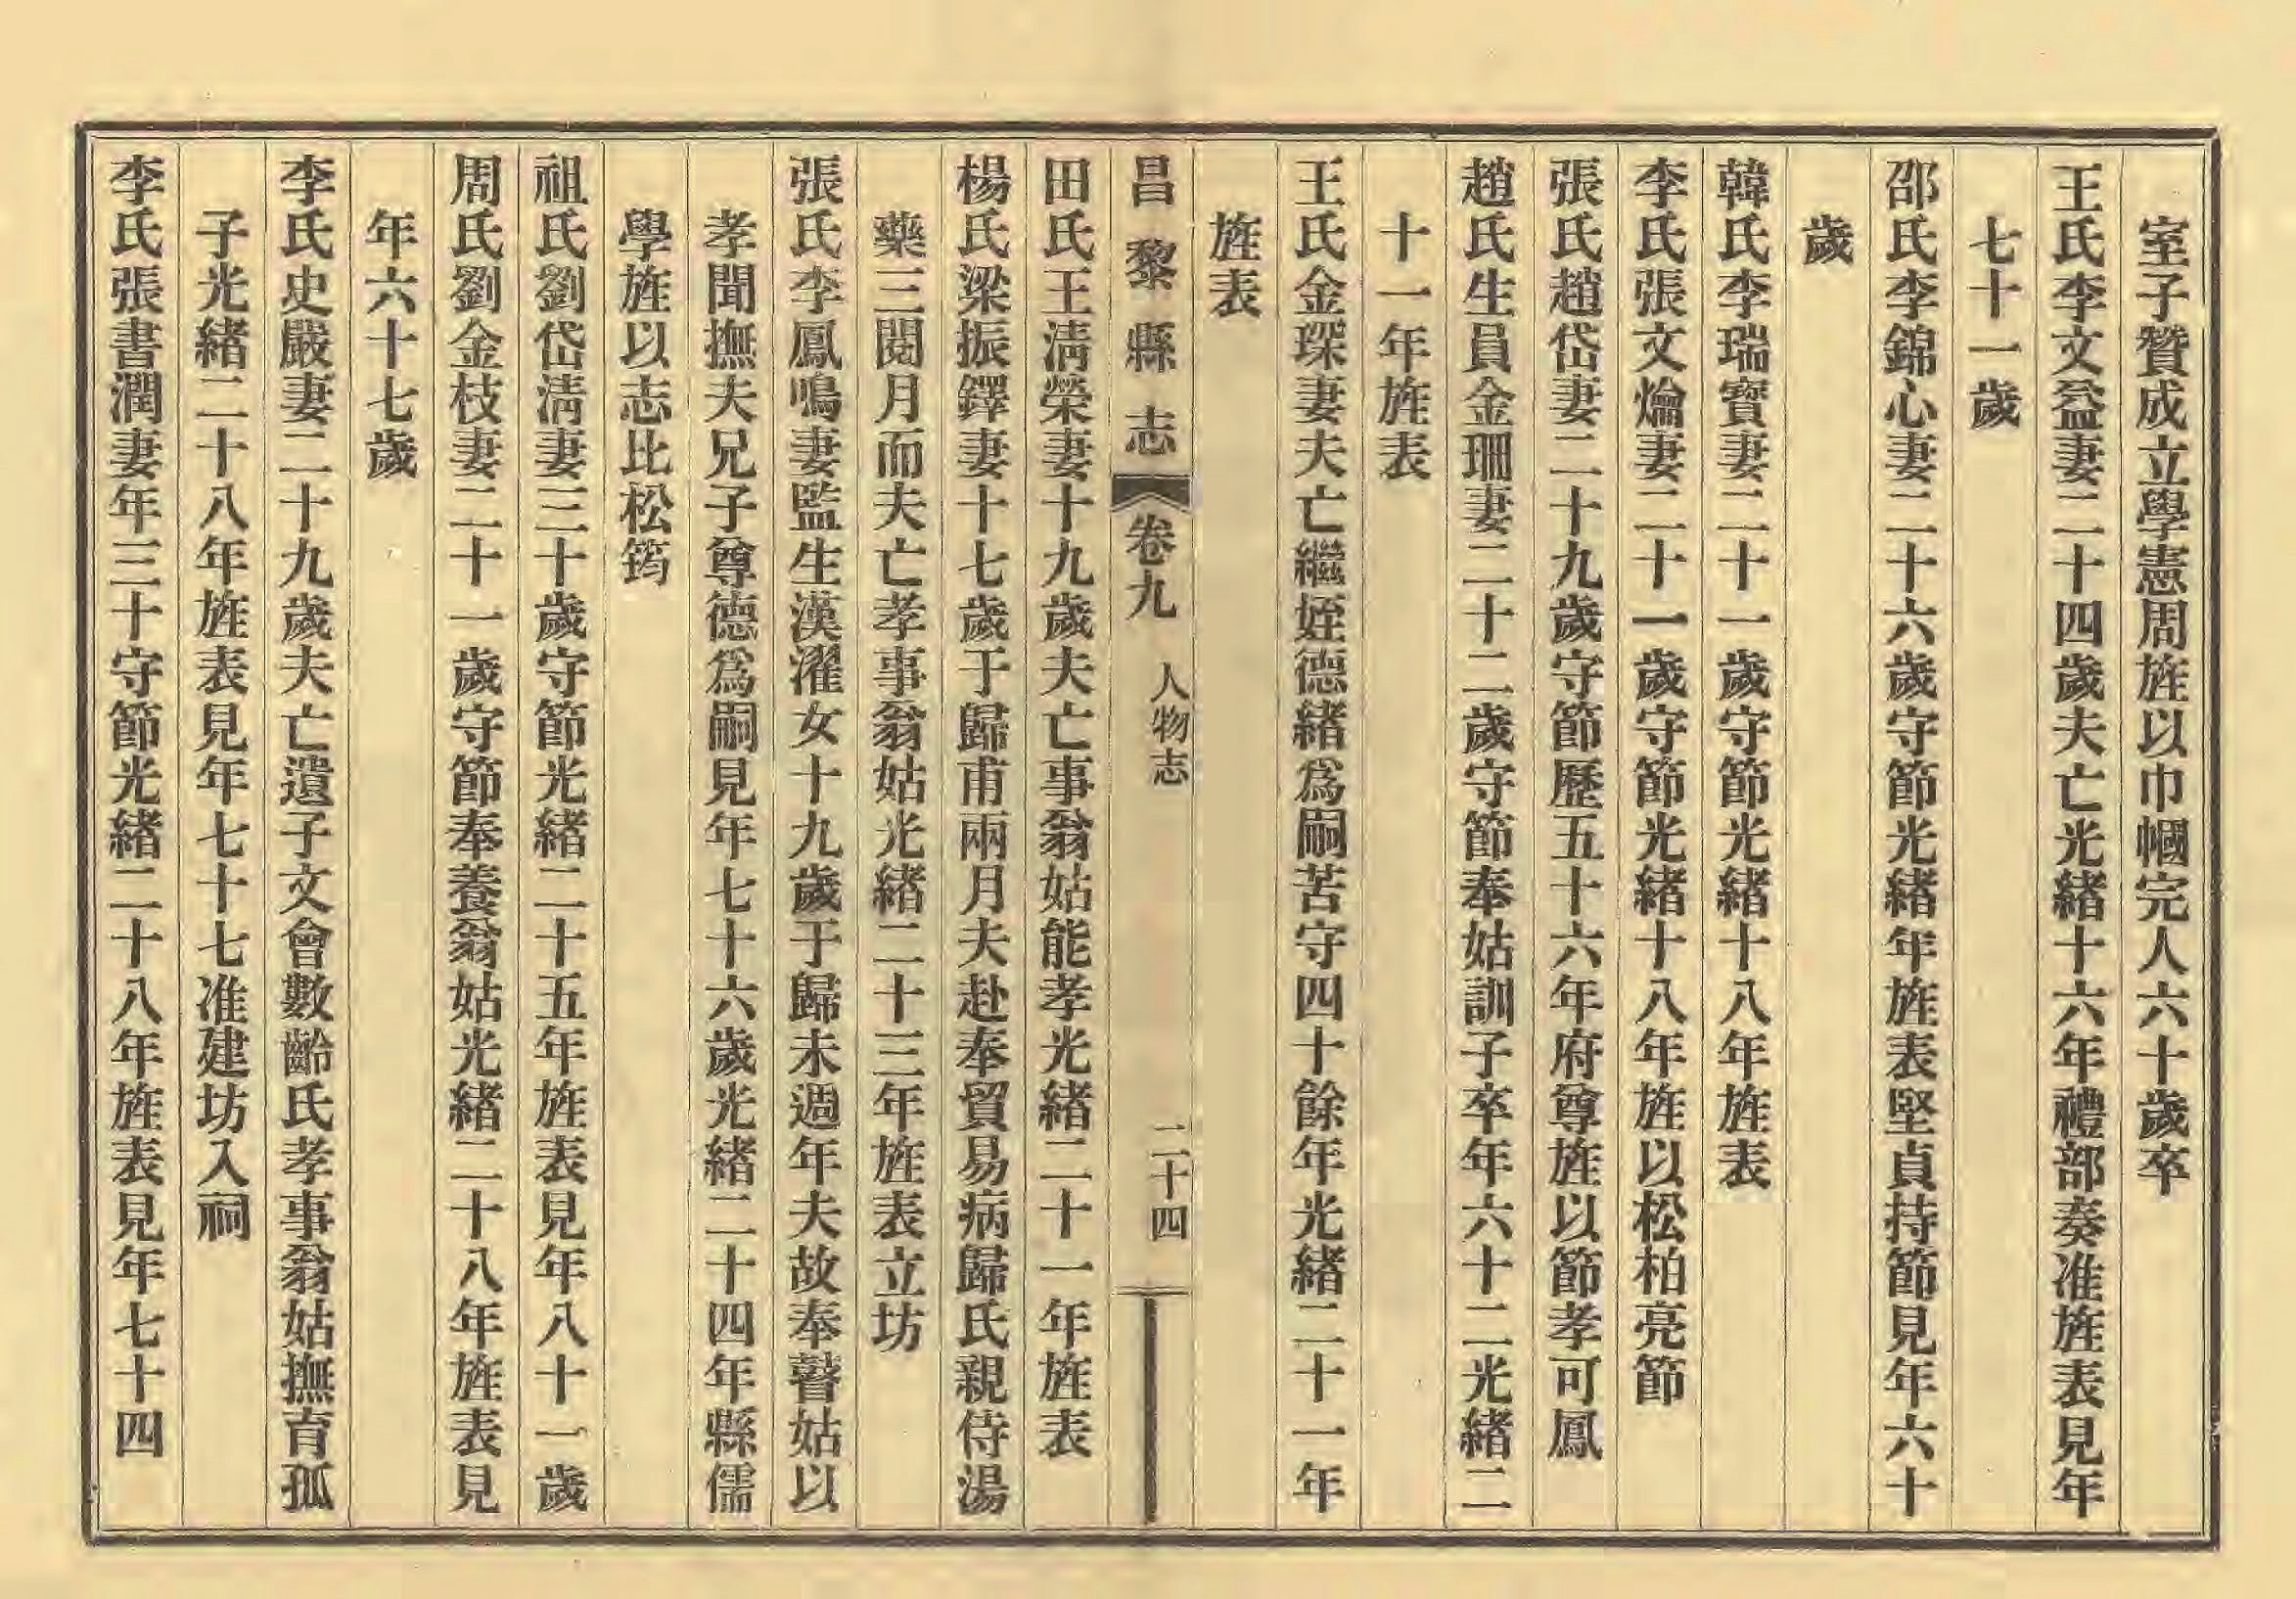 室子贊成立學憲周旌以巾幗完人六十歲卒
王氏李文益妻二十四歲夫亡光緒十六年禮部奏准旌表見年
七十一歲
邵氏李錦心妻二十六歲守節光緒年旌表堅貞持節見年六十
歲
韓氏李瑞寶妻二十一歲守節光緒十八年旌表
李氏張文爚妻二十一歲守節光緒十八年旌以松柏亮節
張氏趙岱妻二十九歲守節歷五十六年府尊旌以節孝可鳳
趙氏生員金珊妻二十二歲守節奉姑訓子卒年六十二光緒二
十一年旌表
王氏金琛妻夫亡繼姪德緒爲嗣苦守四十餘年光緒二十一年
旌表
昌黎縣志 卷九 人物志 二十四
田氏王淸榮妻十九歲夫亡事翁姑能孝光緒二十一年旌表
楊氏梁振鐸妻十七歲于歸甫兩月夫赴奉貿易病歸氏親侍湯
藥三閱月而夫亡孝事翁姑光緒二十三年旌表立坊
張氏李鳳鳴妻監生漢濯女十九歲于歸未週年夫故奉瞽姑以
孝聞撫夫兄子尊德爲嗣見年七十六歲光緒二十四年縣儒
學旌以志比松筠
祖氏劉岱淸妻三十歲守節光緒二十五年旌表見年八十一歲
周氏劉金枝妻二十一歲守節奉養翁姑光緒二十八年旌表見
年六十七歲
李氏史嚴妻二十九歲夫亡遺子文會數齡氏孝事翁姑撫育孤
子光緒二十八年旌表見年七十七准建坊入祠
李氏張書潤妻年三十守節光緒二十八年旌表見年七十四